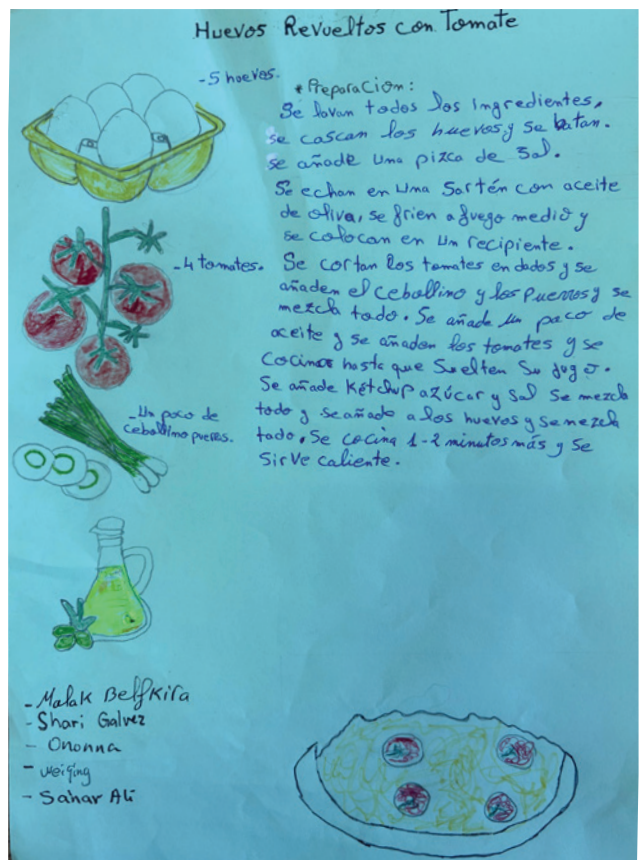 Huevos Revueltos con Tomate
-5 huevos.
* Preparación:
Se lavan todos los Ingredientes.
se cascan los huevos y se batan.
se añade una pizca de Sal.
Se echan en una Sartén con aceite
de oliva, se frien a fuego medio y
se colocan en un recipiente.
-4 tomates.
Se cortan los tomates en dados y se
añaden el Cebollino y los Puerros y se
mezcla todo. Se añade un poco de
aceite y se añaden los tomates y se
Cocinar hasta que Suelten Su jugo.
Se añade Kétchup azúcar y Sal Se mezcla
todo y se añade a los huevos y se mezcla
todo. Se cocina 1-2 minutos más y se
Sirve caliente.
-Un poco de
Cebollino puerros.
- Malak Belfkira
- Shari Galvez
- Ononna
- weiqing
- Sahar Ali